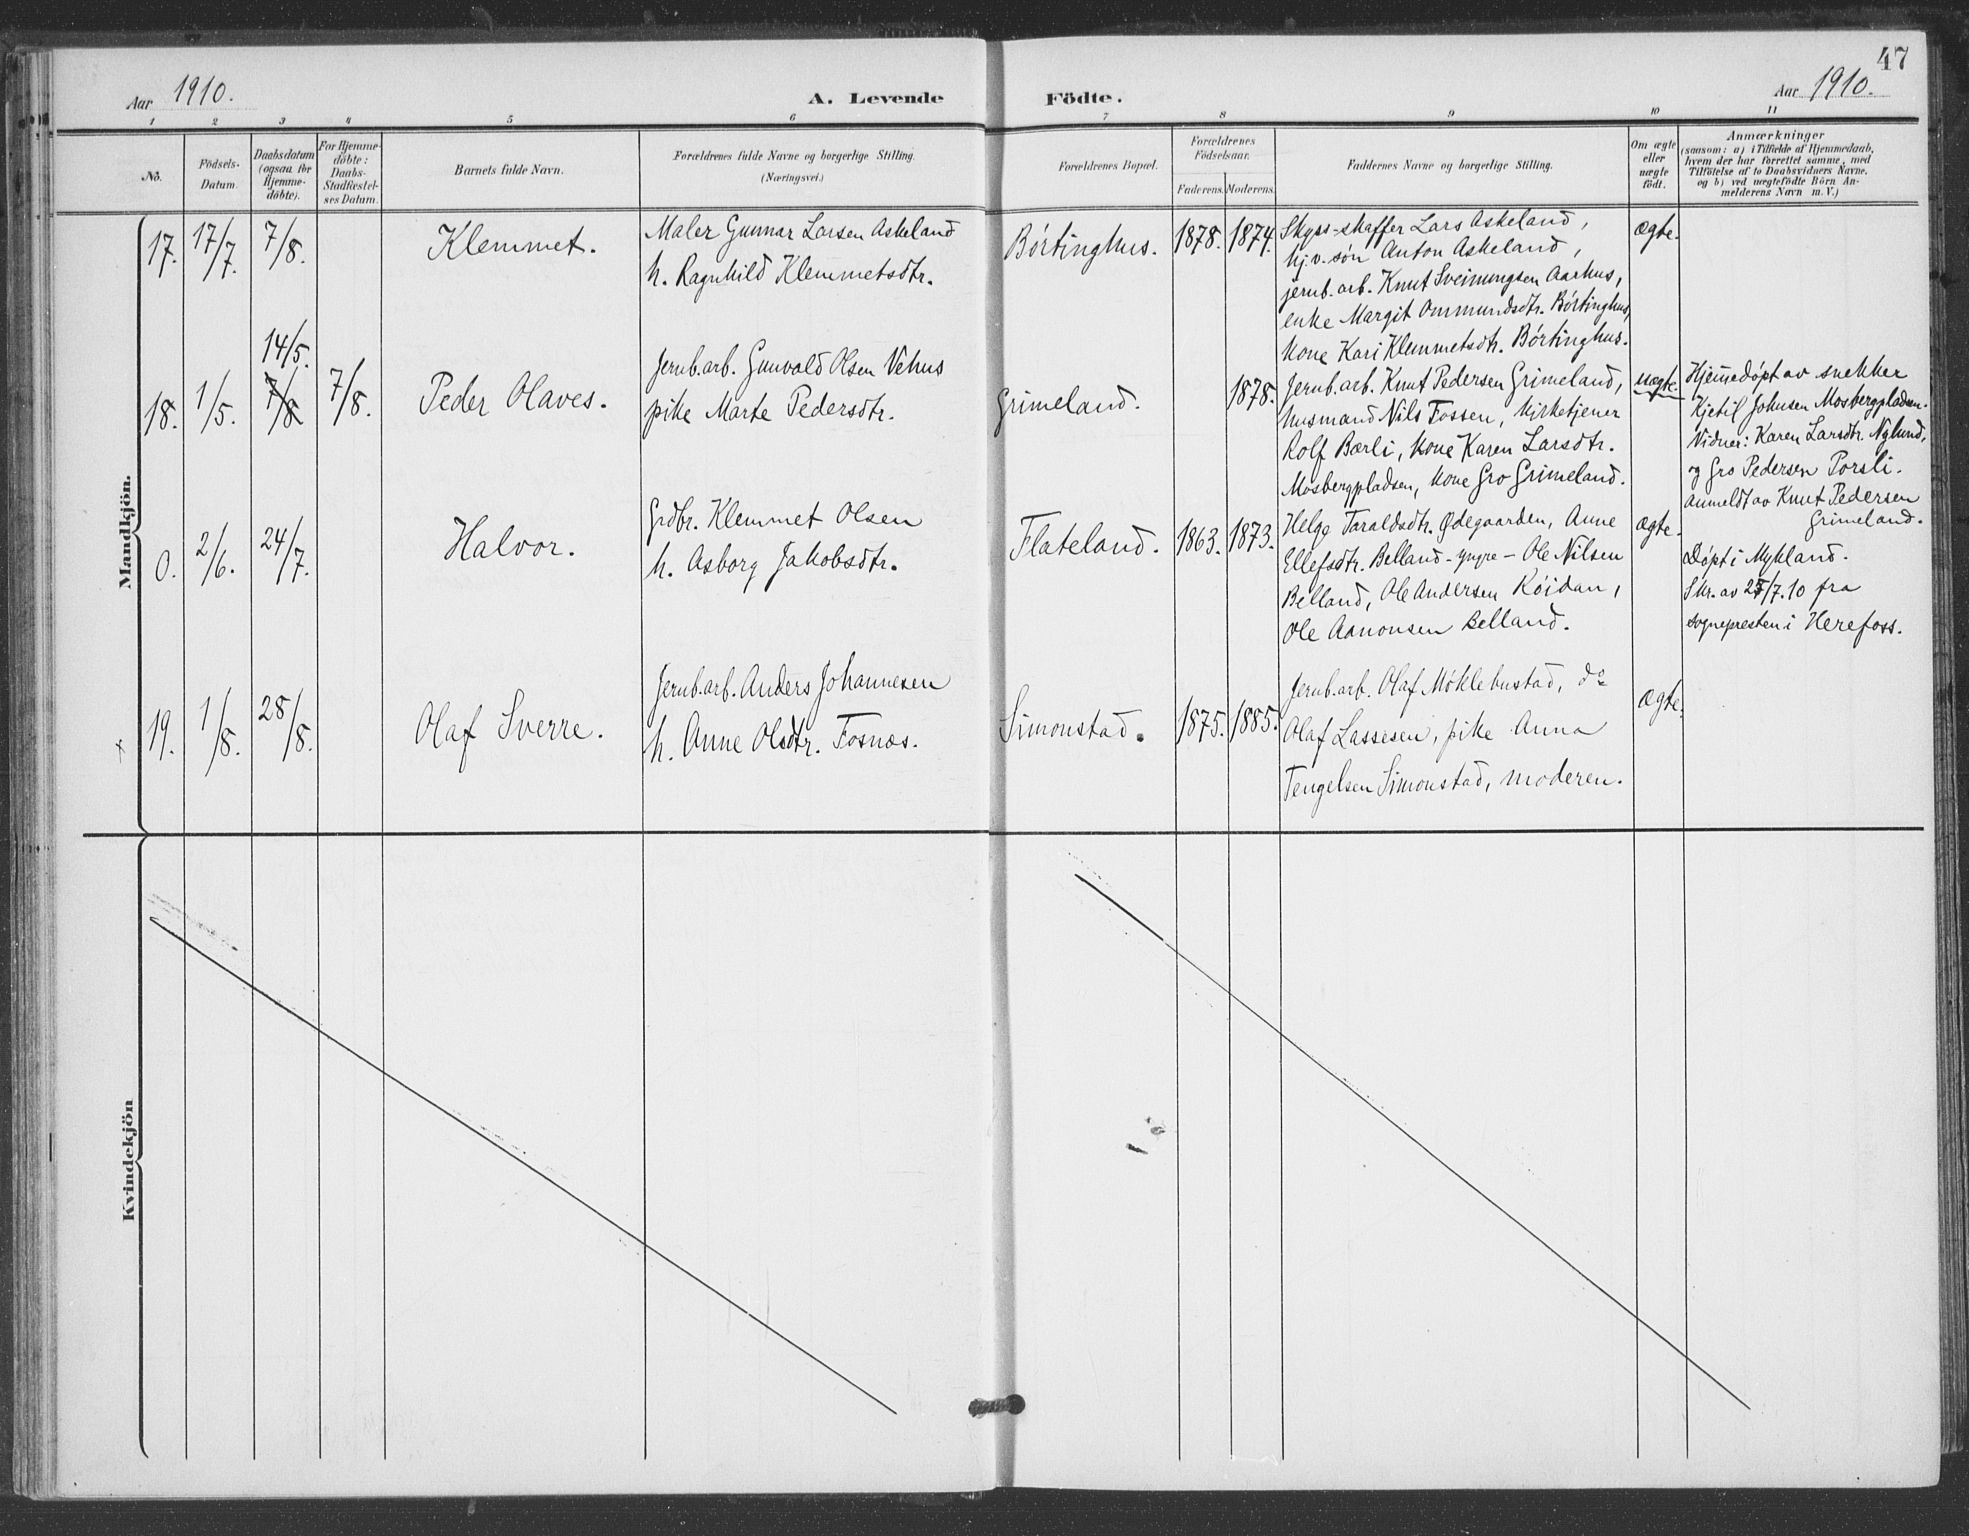 47
Aar 1910.
A. Levende Födte.
Aar 1910.
1 2 3 4 5 6 7 8 9 10 11
No.
Födsels-
Datum.
Daabsdatum
(ogsaa for
Hjemme-
döbte).
For Hjemme-
döbte:
Daabs-
Stadfæstel-
ses Datum.
Barnets fulde Navn.
Forældrenes fulde Navne og borgerlige Stilling.
(Næringsvei.)
Forældrenes Bopæl.
Forældrenes
Födselsaar.
Faderens. Moderens.
Faddernes Navne og borgerlige Stilling.
Om ægte
eller
uægte
födt.
Anmærkninger
(saasom: a) i Tilfælde af Hjemmedaab,
hvem der har forrettet samme, med
Tilföielse af to Daabsvidners Navne,
og b) ved uægtefödte Börn An-
melderens Navn m. V.)
Mandkjön.
17.
17/7.
7/8.
Klemmet.
Maler Gunnar Larsen Askeland
h. Ragnhild Klemmetsdtr.
Børtinghus.
1878.
1874.
Skyss-skaffer Lars Askeland,
hj.v. søn Anton Askeland,
jernb. arb. Knut Sveinungsen Aarhus,
enke Margit Ommundsdtr. Børtinghus,
kone Kari Klemmetsdtr. Børtinghus.
ægte.
18.
1/5.
14/5.
7/8
7/8.
Peder Olaves.
Jernb.arb. Gunvald Olsen Vehus
pike Marte Pedersdtr.
Grimeland.
1878.
Jernb. arb. Knut Pedersen Grimeland,
husmand Nils Fossen, kirketjener
Rolf Bærli, kone Karen Larsdtr.
Mosbergpladsen, kone Gro Grimeland.
uægte.
Hjemmedøpt av snekker
Kjetil Johnsen Mosbergpladsen.
Vidner: Karen Larsdtr. Nylund,
og Gro Pedersen Porsli.
Anmeldt av Knut Pedersen
Grimeland.
0.
2/6.
24/7.
Halvor.
Grdbr. Klemmet Olsen
h. Asborg Jakobsdtr.
Flateland.
1863.
1873.
Helge Taraldsdtr. Ødegaarden, Anne
Ellefsdtr. Belland - yngre - Ole Nilsen
Belland, Ole Andersen Røidan,
Ole Aanonsen Belland.
ægte.
Døpt i Mykland.
Skr. av 25/7.10 fra
sognepresten i Herefoss.
x 19.
1/8.
28/8.
Olaf Sverre.
Jernb.arb. Anders Johannesen
h. Anne Olsdtr. Fosnæs.
Simonstad.
1875.
1885.
Jernb. arb. Olaf Møklebustad, do
Olaf Lassesen, pike Anna
Tengelsen Simonstad, moderen.
ægte.
Kvindekjön